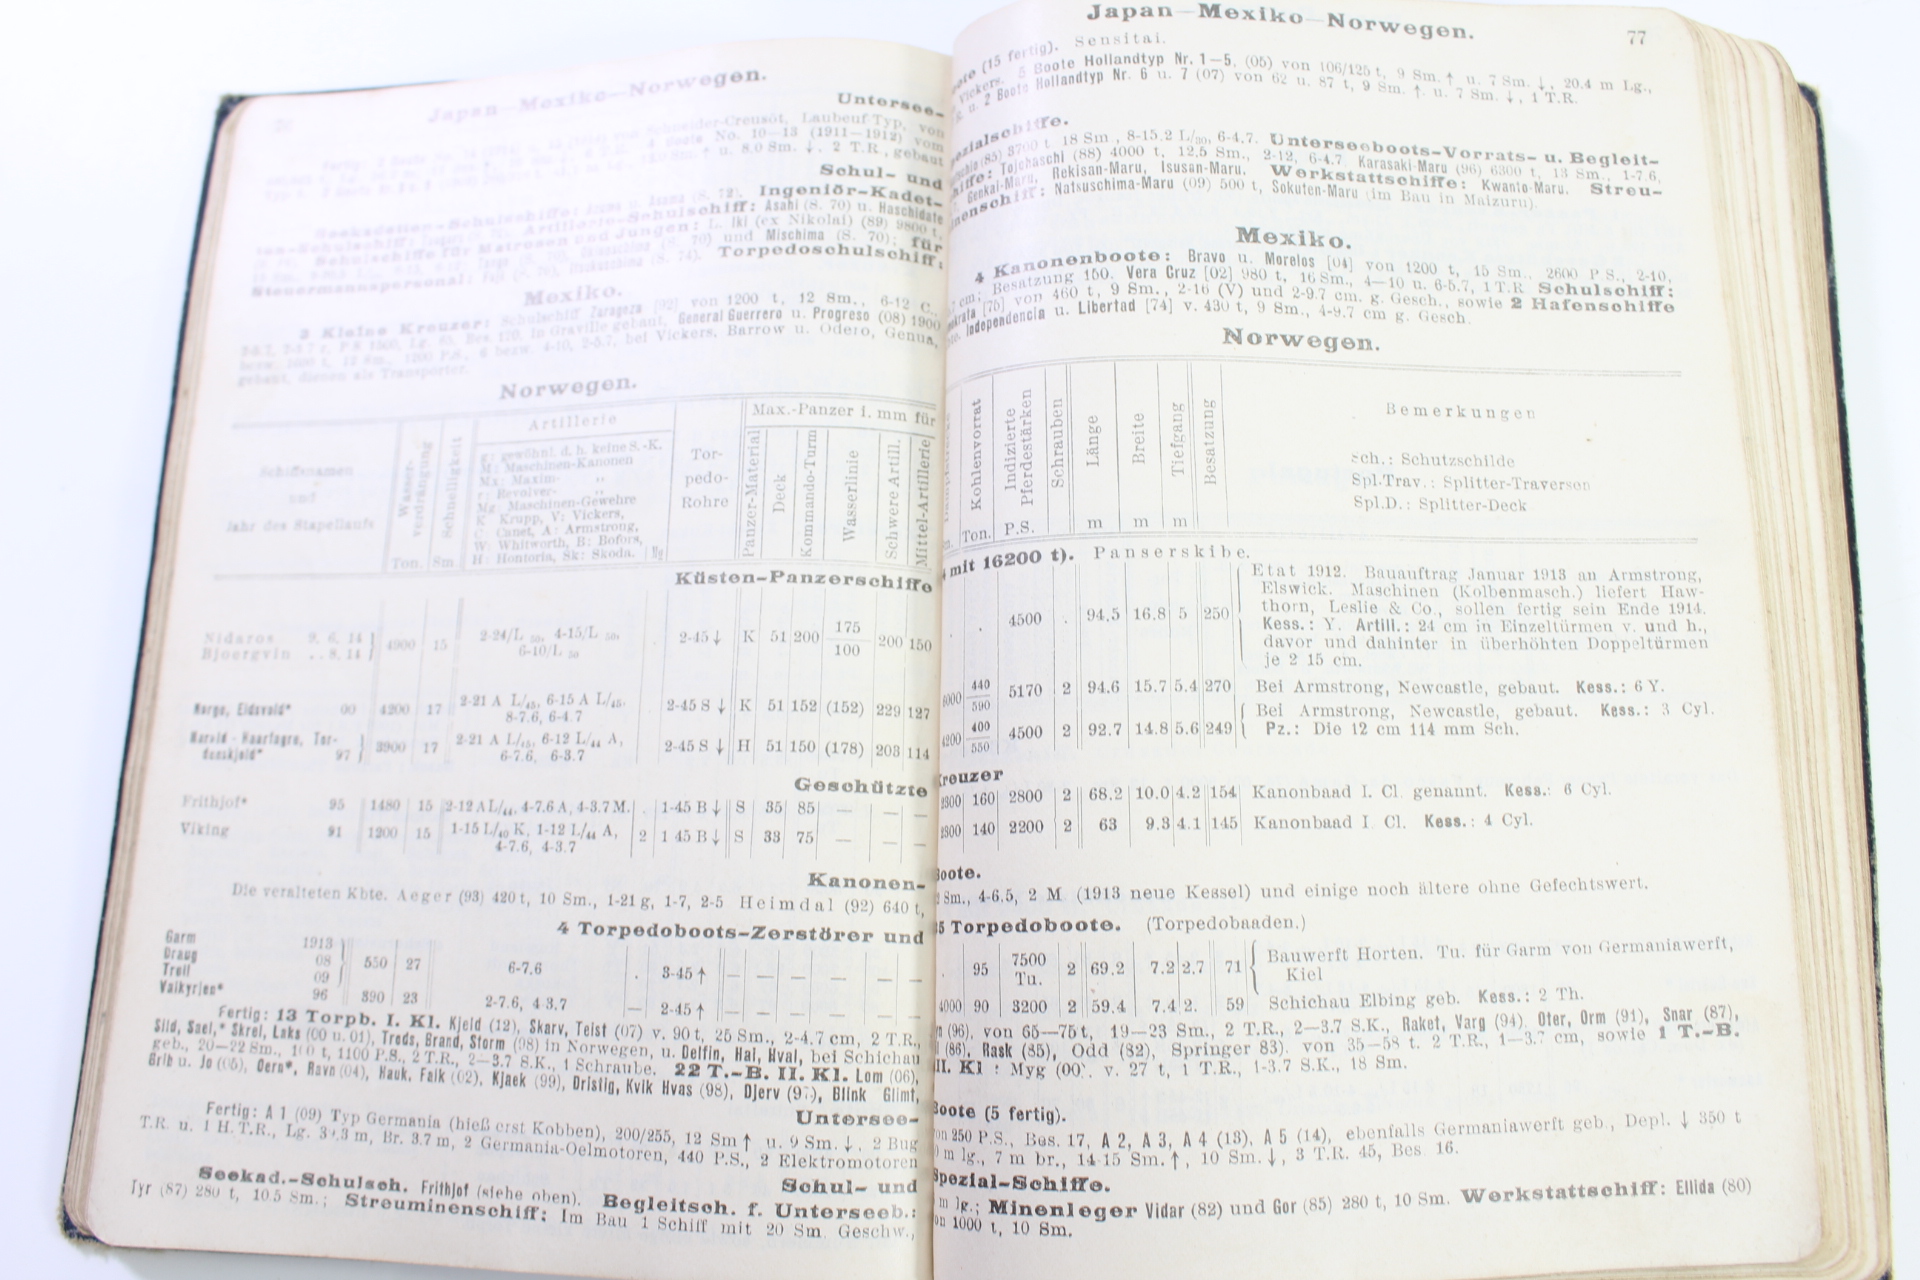 Japan—Mexiko—Norwegen.
Untersee-
Schneider-Creusot, Laubeuf-Typ, von
4 Boote No. 10—13 (1911—1912) vom
↑ u. 8.0 Sm. ↓, 2 T.R., gebaut
Schul- und
Ingeniör-Kadet-
Artillerie-Schulschiff: Asahi (S. 70) u. Haschidate
Schulschiffe für Matrosen und Jungen: Iki (ex Nikolai) (89) 9800 t,
(S. 70) und Mischima (S. 70); für
Steuermannspersonal: (S. 74). Torpedoschulschiff:
Mexiko.
3 Kleine Kreuzer: Schulschiff Zaragoza (92) von 1200 t, 12 Sm., 6-12 C.,
in Graville gebaut, General Guerrero u. Progreso (08) 1900
4-10, 2-5.7, bei Vickers, Barrow u. Odero, Genua,
gebaut, dienen als Transporter.
Norwegen.
Schiffsnamen
und
Jahr des Stapellaufs
Wasser-verdrängung
Ton.
Schnelligkeit
Sm
Artillerie
g: gewöhnl. d. h. keine S.-K.
M: Maschinen-Kanonen
Mx: Maxim- "
r: Revolver- "
Mg: Maschinen-Gewehre
K: Krupp, V: Vickers,
C: Canet, A: Armstrong,
W: Whitworth, B: Bofors,
H: Hontoria, Sk: Skoda.
Mg
Tor-
pedo-
Rohre
Max.-Panzer i. mm für
Panzer-Material
Deck
Kommando-Turm
Wasserlinie
Schwere Artill.
Mittel-Artillerie
Küsten-Panzerschiffe
Nidaros 9. 6. 14
Bjoergvin . . 8. 14 } 4900 15 2-24/L 50, 4-15/L 50, 6-10/L 50 . 2-45 ↓ K 51 200 175 100 200 150
Norge, Eidsvold* 00 4200 17 2-21 A L/45, 6-15 A L/45, 8-7.6, 6-4.7 2-45 S ↓ K 51 152 (152) 229 127
Harald - Haarfagre, Tor-
denskjold* 97 } 3900 17 2-21 A L/45, 6-12 L/44 A, 6-7.6, 6-3.7 2-45 S ↓ H 51 150 (178) 203 114
Geschützte
Frithjof* 95 1480 15 2-12 A L/44, 4-7.6 A, 4-3.7 M. . 1-45 B ↓ S 35 85 — — —
Viking 91 1200 15 1-15 L/40 K, 1-12 L/44 A, 4-7.6, 4-3.7 2 1 45 B ↓ S 33 75 — — —
Kanonen-
Die veralteten Kbte. Aeger (93) 420 t, 10 Sm., 1-21 g, 1-7, 2-5 Heimdal (92) 640 t,
4 Torpedoboots-Zerstörer und
Garm 1913
Draug 08
Troll 09 } 550 27 6-7.6 . 3-45 ↑ — — — — — —
Valkyrien* 96 390 23 2-7.6, 4 3.7 — 2-45 ↑ — — — — — —
Fertig: 13 Torpb. I. Kl. Kjeld (12), Skarv, Teist (07) v. 90 t, 25 Sm., 2-4.7 cm, 2 T.R.,
Sild, Sael,* Skrei, Laks (00 u. 01), Trods, Brand, Storm (98) in Norwegen, u. Delfin, Hai, Hval, bei Schichau
geb., 20—22 Sm., 100 t, 1100 P.S., 2 T.R., 2—3.7 S.K., 1 Schraube. 22 T.-B. II. Kl. Lom (06),
Grib u. Jo (05), Oern*, Ravn (04), Hauk, Falk (02), Kjaek (99), Dristig, Kvik Hvas (98), Djerv (97), Blink Glimt,
Untersee-
Fertig: A 1 (09) Typ Germania (hieß erst Kobben), 200/255, 12 Sm ↑ u. 9 Sm. ↓, 2 Bug
T.R. u. 1 H.T.R., Lg. 39.3 m, Br. 3.7 m, 2 Germania-Oelmotoren, 440 P.S., 2 Elektromotoren
Schul- und
Seekad.-Schulsch. Frithjof (siehe oben). Begleitsch. f. Unterseeb.:
Tyr (87) 280 t, 10.5 Sm.; Streuminenschiff: Im Bau 1 Schiff mit 20 Sm Geschw.,
Japan—Mexiko—Norwegen.
77
boote (15 fertig). Sensitai.
Vickers. 5 Boote Hollandtyp Nr. 1—5. (05) von 106/125 t, 9 Sm. ↑ u. 7 Sm. ↓, 20.4 m Lg.,
u. 2 Boote Hollandtyp Nr. 6 u. 7 (07) von 62 u. 87 t, 9 Sm. ↑ u. 7 Sm. ↓, 1 T.R.
Spezialschiffe.
(85) 3700 t 18 Sm , 8-15.2 L/30, 6-4.7. Unterseeboots-Vorrats- u. Begleit-
schiffe: Tojohaschi (88) 4000 t, 12.5 Sm., 2-12, 6-4.7 Karasaki-Maru (96) 6300 t, 13 Sm., 1-7.6,
Genkai-Maru, Rekisan-Maru, Isusan-Maru. Werkstattschiffe: Kwanto-Maru. Streu-
minenschiff: Natsuschima-Maru (09) 500 t, Sokuten-Maru (im Bau in Maizuru).
Mexiko.
4 Kanonenboote: Bravo u. Morelos [04] von 1200 t, 15 Sm., 2600 P S., 2-10,
cm; Besatzung 150. Vera Cruz [02] 980 t, 16 Sm., 4—10 u. 6-5.7, 1 T.R Schulschiff:
[75] von 460 t, 9 Sm., 2-16 (V) und 2-9.7 cm. g. Gesch., sowie 2 Hafenschiffe
Independencia u. Libertad [74] v. 430 t, 9 Sm., 4-9.7 cm g. Gesch.
Norwegen.
Kohlenvorrat
Ton.
Indizierte Pferdestärken
P.S.
Schrauben
Länge
m
Breite
m
Tiefgang
m
Besatzung
Bemerkungen
Sch.: Schutzschilde
Spl.Trav.: Splitter-Traversen
Spl.D.: Splitter-Deck
mit 16200 t). Panserskibe.
. 4500 . 94.5 16.8 5 250 Etat 1912. Bauauftrag Januar 1913 an Armstrong,
Elswick. Maschinen (Kolbenmasch.) liefert Haw-
thorn, Leslie & Co., sollen fertig sein Ende 1914.
Kess.: Y. Artill.: 24 cm in Einzeltürmen v. und h.,
davor und dahinter in überhöhten Doppeltürmen
je 2 15 cm.
6000 440 590 5170 2 94.6 15.7 5.4 270 Bei Armstrong, Newcastle, gebaut. Kess.: 6 Y.
4200 400 550 4500 2 92.7 14.8 5.6 249 Bei Armstrong, Newcastle, gebaut. Kess.: 3 Cyl.
Pz.: Die 12 cm 114 mm Sch.
Kreuzer
160 2800 2 68.2 10.0 4.2 154 Kanonbaad I. Cl. genannt. Kess.: 6 Cyl.
140 2200 2 63 9.3 4.1 145 Kanonbaad I Cl. Kess.: 4 Cyl.
Boote.
Sm., 4-6.5, 2 M (1913 neue Kessel) und einige noch ältere ohne Gefechtswert.
35 Torpedoboote. (Torpedobaaden.)
. 95 7500 Tu. 2 69.2 7.2 2.7 71 { Bauwerft Horten. Tu. für Garm von Germaniawerft,
Kiel
4000 90 3200 2 59.4 7.4 2. 59 Schichau Elbing geb. Kess.: 2 Th.
(96), von 65—75 t, 19—23 Sm., 2 T.R., 2—3.7 S.K., Raket, Varg (94) Oter, Orm (91), Snar (87),
(86), Rask (85), Odd (82), Springer 83). von 35—58 t. 2 T.R., 1—3.7 cm, sowie 1 T.-B.
II. Kl : Myg (00). v. 27 t, 1 T.R., 1-3.7 S.K., 18 Sm.
Boote (5 fertig).
von 250 P.S., Bes. 17, A 2, A 3, A 4 (13), A 5 (14), ebenfalls Germaniawerft geb., Depl. ↓ 350 t
m lg., 7 m br., 14-15 Sm. ↑, 10 Sm. ↓, 3 T.R. 45, Bes. 16.
Spezial-Schiffe.
m lg.; Minenleger Vidar (82) und Gor (85) 280 t, 10 Sm. Werkstattschiff: Ellida (80)
von 1000 t, 10 Sm.